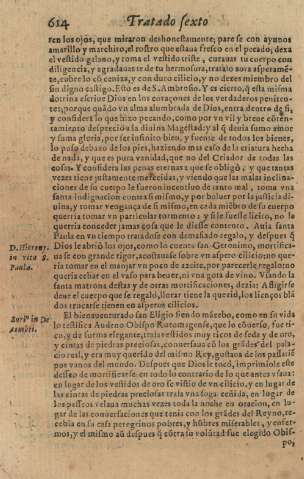 614 Tratado sexto
ren los ojos, que miraron deshonestamente, parese con ayunos
amarillo y marchito, el rostro que estaua fresco en el pecado, dexa
el vestido galano, y toma el vestido triste, curauas tu cuerpo con
diligencia, y agradauaste de tu hermosura, tratalo aora asperamẽ-
te, cubre lo cõ ceniza, y con duro cilicio, y no dexes miembro del
sin digno castigo. Esto es de S. Ambrosio. Y es cierto, q̃ esta misma
dotrina escriue Dios en los coraçones de los verdaderos peniten-
tes, porque quãdo vn alma alumbrada de Dios, entra dentro de si,
y considera lo que hizo pecando, como por vn vil y breue côten-
tamiento despreciò la diuina Magestad, y al q̃ deuia sumo amor
y suma gloria, por ser infinito bien, y fuente de todos los bienes,
lo puso debaxo de los pies, haziendo mas caso de la criatura hecha
de nada, y que es pura vanidad, que no del Criador de todas las
cosas. Y considera las penas eternas a que se obligò, y que tantas
vezes tiene justamente merecidas, y viendo que las malas inclina-
ciones de su cuerpo le fueron incentiuo de tanto mal, toma vna
santa indignacion contra si mismo, y por boluer por la justicia di-
uina, y tomar vengança de si mismo, en cada miembro de su cuerpo
querria tomar vn particular tormento; y si le fuesse licito, no la
querria conceder jamas gozo que le diesse contento. Assi santa
Paula en vn tiempo trata dose con demasiado regalo, y despues q̃
D. Hierony. Dios le abriò los ojos, como lo cuenta san Geronimo, mortifica-
in vita S. uase con grande rigor, acostauase sobre vn aspero cilicio; no que-
Paulæ. ria tomar en el manjar vn poco de azeite, por parecerle, regalo: no
queria echar en el vaso para beuer, ni vna gota de vino. Viendo la
santa matrona destas y de otras mortificaciones, dezia: Afligirse
deue el cuerpo que se regalò, llorar tiene la que riò, los lienços blã
dos trocarse tienen en asperos cilicios.
El bienauenturado san Eligio siendo mãcebo, como en su vida
lo testifica Audeno Obispo Rotomagense, que lo cõoscìa, fue ti-
co, y de suma elegante, traìa vestidos muy ricos de seda y de oro,
y cintas de piedras preciosas, conuersaua cõ los grãdes del pala-
cio real, y era muy querido del mismo Rey, gustaua de los passatiẽ
pos vanos del mundo. Despues que Dios le tocó, imprimiole este
desseo de mortificarse: en todo lo contrario de lo que antes vsaua:
en lugar de los vestidos de oro se vistio de vn cilicio, y en lugar de
las cintas de piedras preciosas traìa vna soga ceñida, en lugar de
los passeos velaua muchas vezes toda la noche en oracion, en lu-
gar de las conuersaciones que tenia con los grãdes del Reyno, re-
cebia en su casa peregrinos pobres, y hõbres miserables, y enfer-
mos, y el mismo aũ despues q̃ cõtra su volũtad fue elegido Obis-
po,